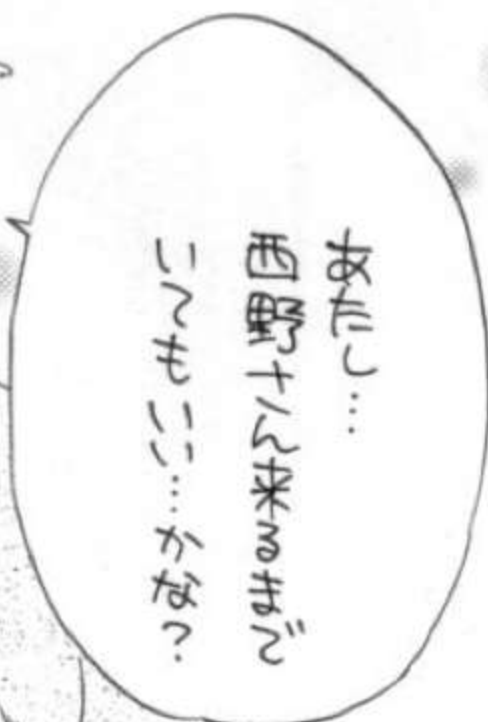 あたし…
西野さん来るまで
いてもいい…かな？